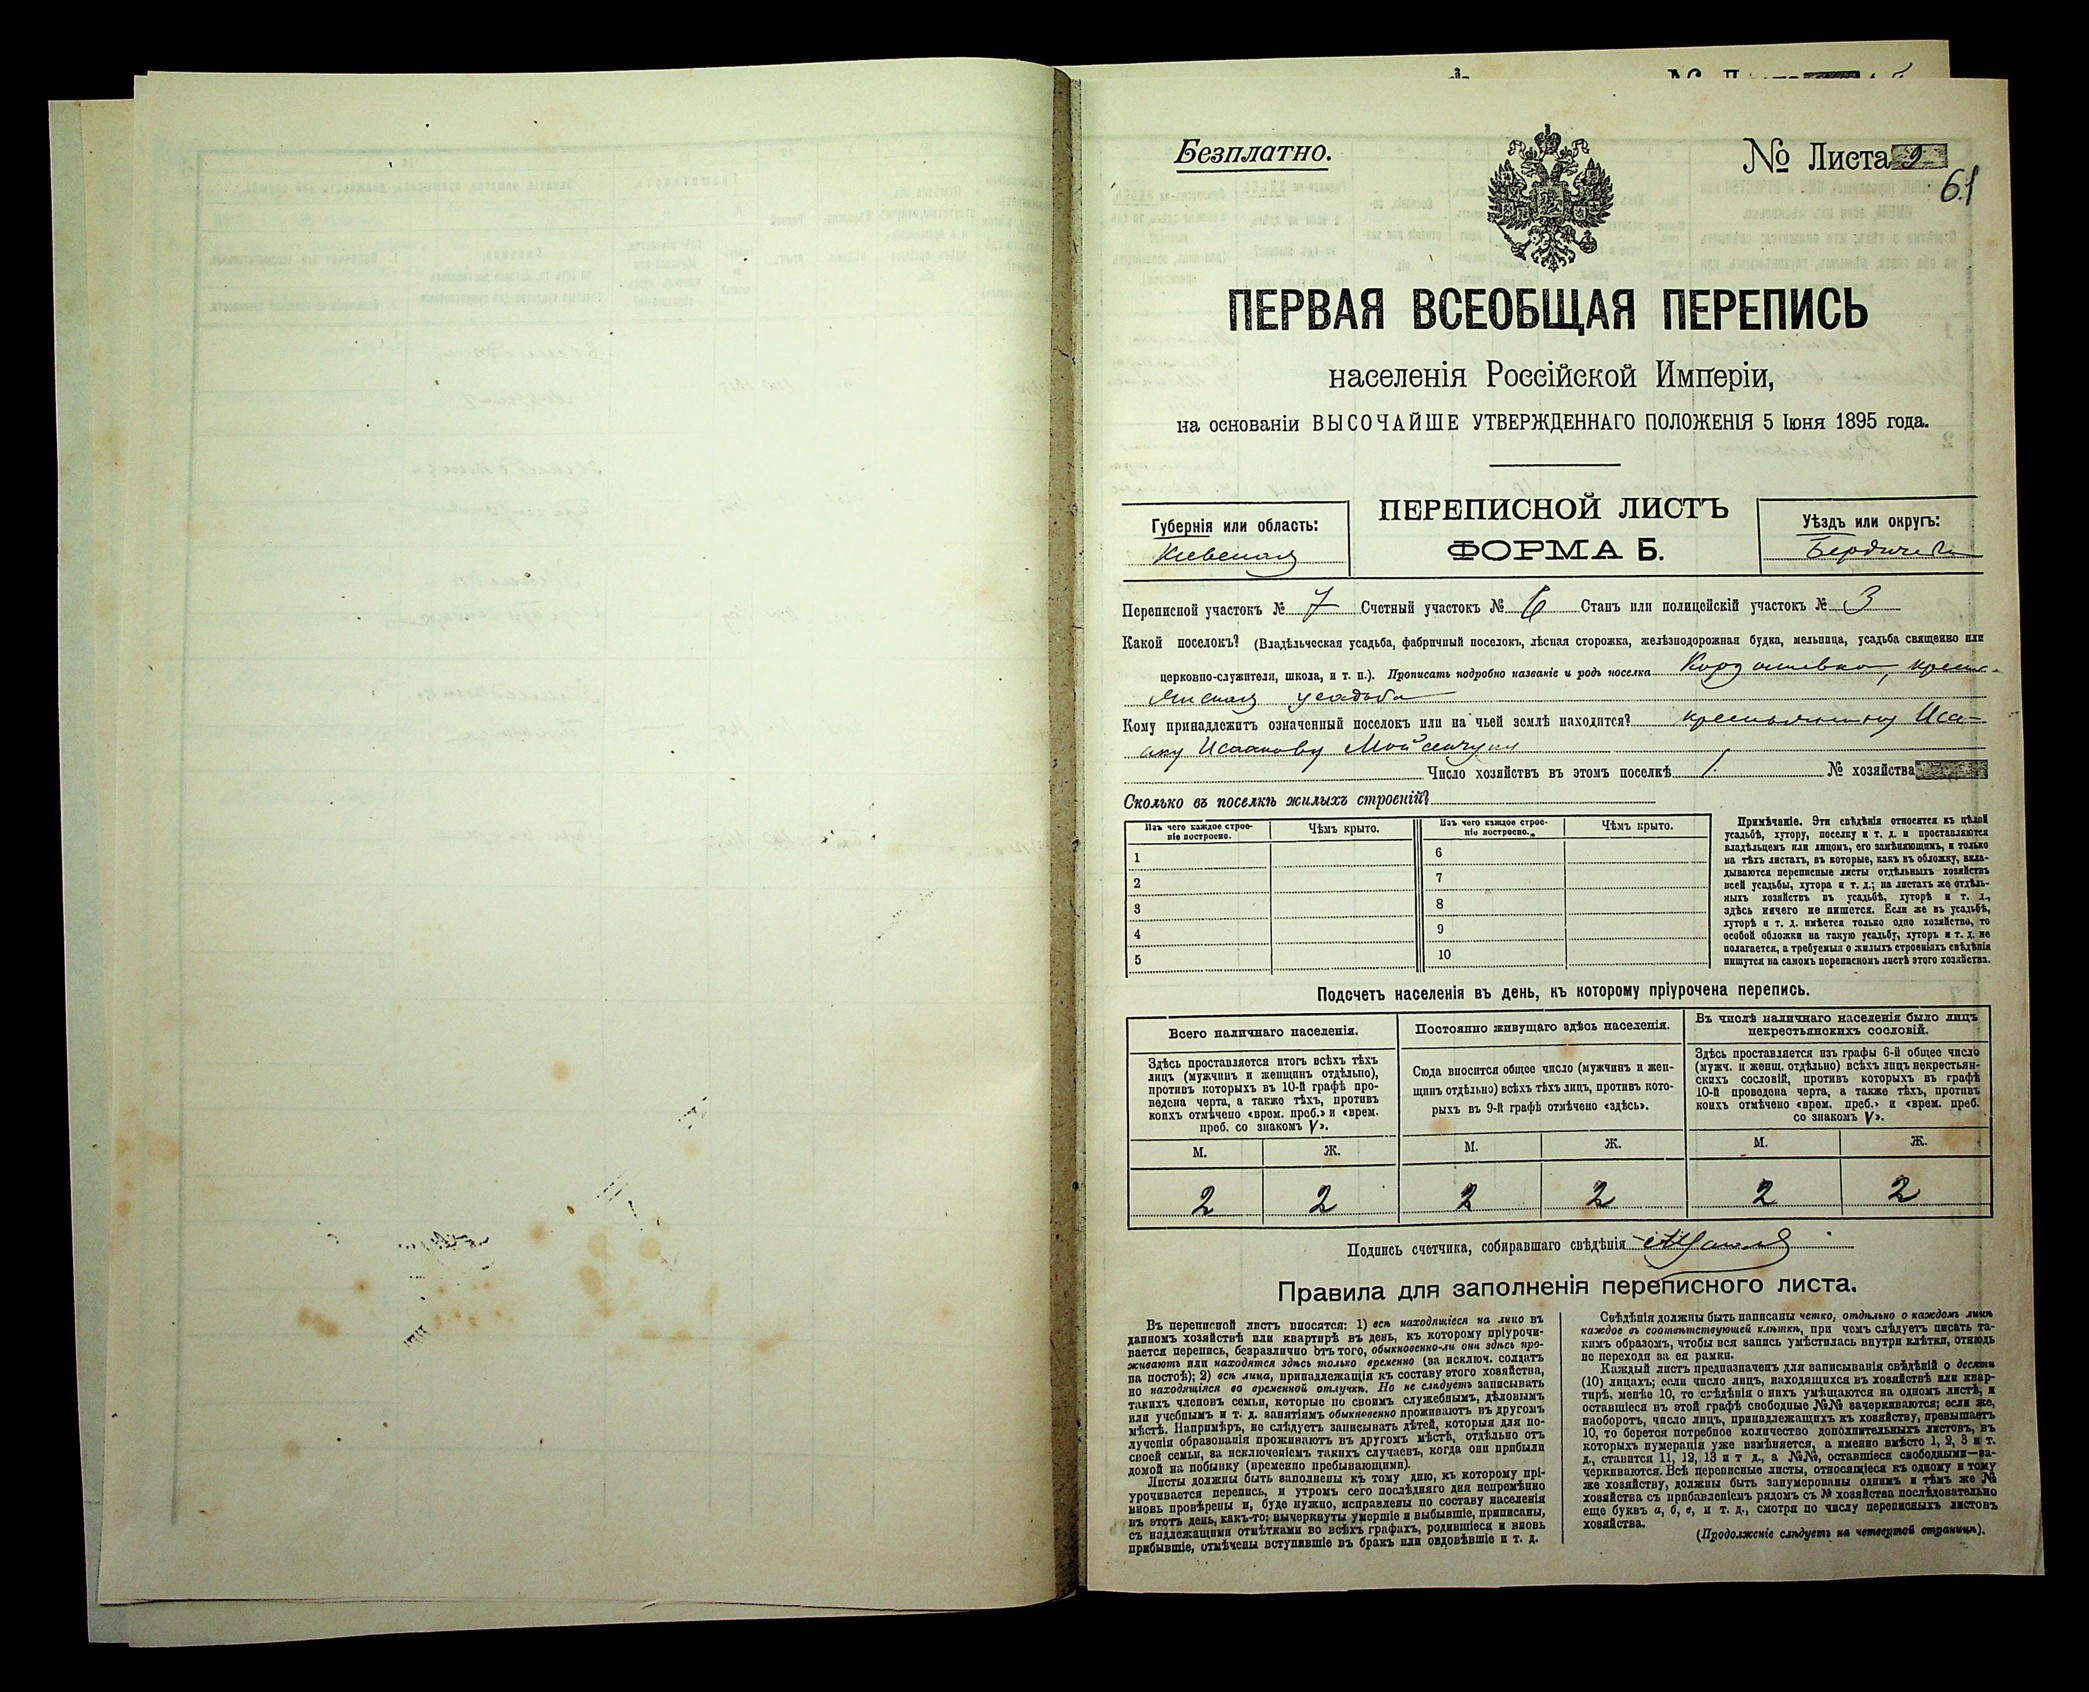 Безплатно.
№ Листа 9
61
ПЕРВАЯ ВСЕОБЩАЯ ПЕРЕПИСЬ
населенія Россійской Имперіи,
на основаніи ВЫСОЧАЙШЕ УТВЕРЖДЕННАГО ПОЛОЖЕНІЯ 5 Іюня 1895 года.
Губернія или область:
Киевская
ПЕРЕПИСНОЙ ЛИСТЪ
ФОРМА Б.
Уѣздъ или округъ:
Переписной участокъ № 7 Счетный участокъ № 6 Станъ или полицейскій участокъ № 3
Какой поселокъ? (Владѣльческая усадьба, фабричный поселокъ, лѣсная сторожка, желѣзнодорожная будка, мельница, усадьба священно или
церковно-служителя, школа, и т. п.). Прописать подробно названіе и родъ поселка
усадьба
Кому принадлежитъ означенный поселокъ или на чьей землѣ находится? крестьянину Иса-
аку Исаакову
Число хозяйствъ въ этомъ поселкѣ 1. № хозяйства
Сколько въ поселкѣ жилыхъ строеній?
Изъ чего каждое строе-
ніе построено.
Чѣмъ крыто.
Изъ чего каждое строе-
ніе построено.
Чѣмъ крыто.
1
6
2
7
3
8
4
9
5
10
Примѣчаніе. Эти свѣдѣнія относятся къ цѣлой
усадьбѣ, хутору, поселку и т. д. и проставляются
владѣльцемъ или лицомъ, его замѣняющимъ, и только
на тѣхъ листахъ, въ которые, какъ въ обложку, вкла-
дываются переписные листы отдѣльныхъ хозяйствъ
всей усадьбы, хутора и т. д.; на листахъ же отдѣль-
ныхъ хозяйствъ въ усадьбѣ, хуторѣ и т. д.,
здѣсь ничего не пишется. Если же въ усадьбѣ,
хуторѣ и т. д. имѣется только одно хозяйство, то
особой обложки на такую усадьбу, хуторъ и т. д. не
полагается, а требуемыя о жилыхъ строеніяхъ свѣдѣнія
пишутся на самомъ переписномъ листѣ этого хозяйства.
Подсчетъ населенія въ день, къ которому пріурочена перепись.
Всего наличнаго населенія.
Постоянно живущаго здѣсь населенія.
Въ числѣ наличнаго населенія было лицъ
некрестьянскихъ сословій.
Здѣсь проставляется итогъ всѣхъ тѣхъ
лицъ (мужчинъ и женщинъ отдѣльно),
противъ которыхъ въ 10-й графѣ про-
ведена черта, а также тѣхъ, противъ
коихъ отмѣчено «врем. преб.» и «врем.
преб. со знакомъ V».
Сюда вносится общее число (мужчинъ и жен-
щинъ отдѣльно) всѣхъ тѣхъ лицъ, противъ кото-
рыхъ въ 9-й графѣ отмѣчено «здѣсь».
Здѣсь проставляется изъ графы 6-й общее число
(мужч. и женщ. отдѣльно) всѣхъ лицъ некрестьян-
скихъ сословій, противъ которыхъ въ графѣ
10-й проведена черта, а также тѣхъ, противъ
коихъ отмѣчено «врем. преб.» и «врем. преб.
со знакомъ V».
М. Ж. М. Ж. М. Ж.
2 2 2 2 2 2
Подпись счетчика, собиравшаго свѣдѣнія
Правила для заполненія переписного листа.
Въ переписной листъ вносятся: 1) всѣ находящіеся на лицо въ
данномъ хозяйствѣ или квартирѣ въ день, къ которому пріурочи-
вается перепись, безразлично отъ того, обыкновенно-ли они здѣсь про-
живаютъ или находятся здѣсь только временно (за исключ. солдатъ
на постоѣ); 2) всѣ лица, принадлежащія къ составу этого хозяйства,
но находящіяся во временной отлучкѣ. Но не слѣдуетъ записывать
такихъ членовъ семьи, которые по своимъ служебнымъ, дѣловымъ
или учебнымъ и т. д. занятіямъ обыкновенно проживаютъ въ другомъ
мѣстѣ. Напримѣръ, не слѣдуетъ записывать дѣтей, которыя для по-
лученія образованія проживаютъ въ другомъ мѣстѣ, отдѣльно отъ
своей семьи, за исключеніемъ такихъ случаевъ, когда они прибыли
домой на побывку (временно пребывающими).
Листы должны быть заполнены къ тому дню, къ которому прі-
урочивается перепись, и утромъ сего послѣдняго дня непремѣнно
вновь провѣрены и, буде нужно, исправлены по составу населенія
въ этотъ день, какъ-то: вычеркнуты умершіе и выбывшіе, приписаны,
съ надлежащими отмѣтками во всѣхъ графахъ, родившіеся и вновь
прибывшіе, отмѣчены вступившіе въ бракъ или овдовѣвшіе и т. д.
Свѣдѣнія должны быть написаны четко, отдѣльно о каждомъ лицѣ
каждое въ соотвѣтствующей клѣткѣ, при чемъ слѣдуетъ писать та-
кимъ образомъ, чтобы вся запись умѣстилась внутри клѣтки, отнюдь
не переходя за ея рамки.
Каждый листъ предназначенъ для записыванія свѣдѣній о десяти
(10) лицахъ; если число лицъ, находящихся въ хозяйствѣ или квар-
тирѣ, менѣе 10, то свѣдѣнія о нихъ умѣщаются на одномъ листѣ, и
оставшіеся въ этой графѣ свободные №№ зачеркиваются; если же,
наоборотъ, число лицъ, принадлежащихъ къ хозяйству, превышаетъ
10, то берется потребное количество дополнительныхъ листовъ, въ
которыхъ нумерація уже измѣняется, а именно вмѣсто 1, 2, 3 и т.
д., ставится 11, 12, 13 и т д., а №№, оставшіеся свободными—за-
черкиваются. Всѣ переписные листы, относящіеся къ одному и тому
же хозяйству, должны быть занумерованы однимъ и тѣмъ же №
хозяйства съ прибавленіемъ рядомъ съ № хозяйства послѣдовательно
еще буквъ а, б, в, и т. д., смотря по числу переписныхъ листовъ
хозяйства.
(Продолженіе слѣдуетъ на четвертой страницѣ).